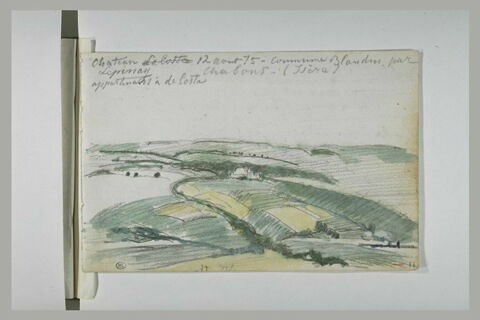 Chateau de Coste 12 aout 75 - Commune Blandin, par
Chabons. (Isère)
appartenant à de Costa